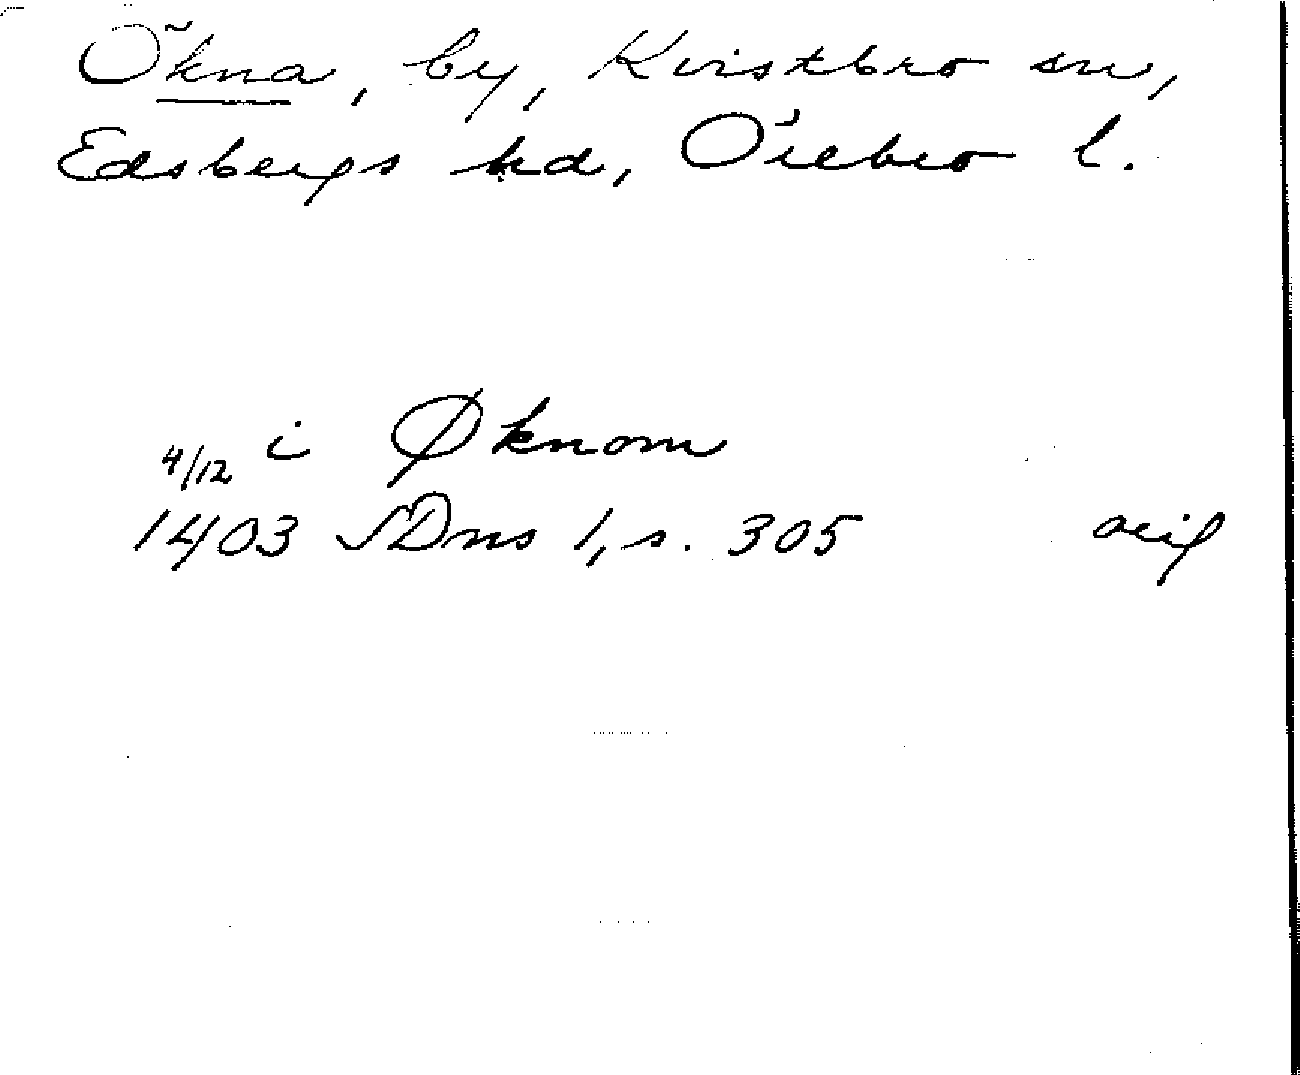 Ökna, by, Kvistbro sn,
Edsbergs hd, Örebro l.
i Øknom
4/12
1403 SDns 1, s. 305 orig